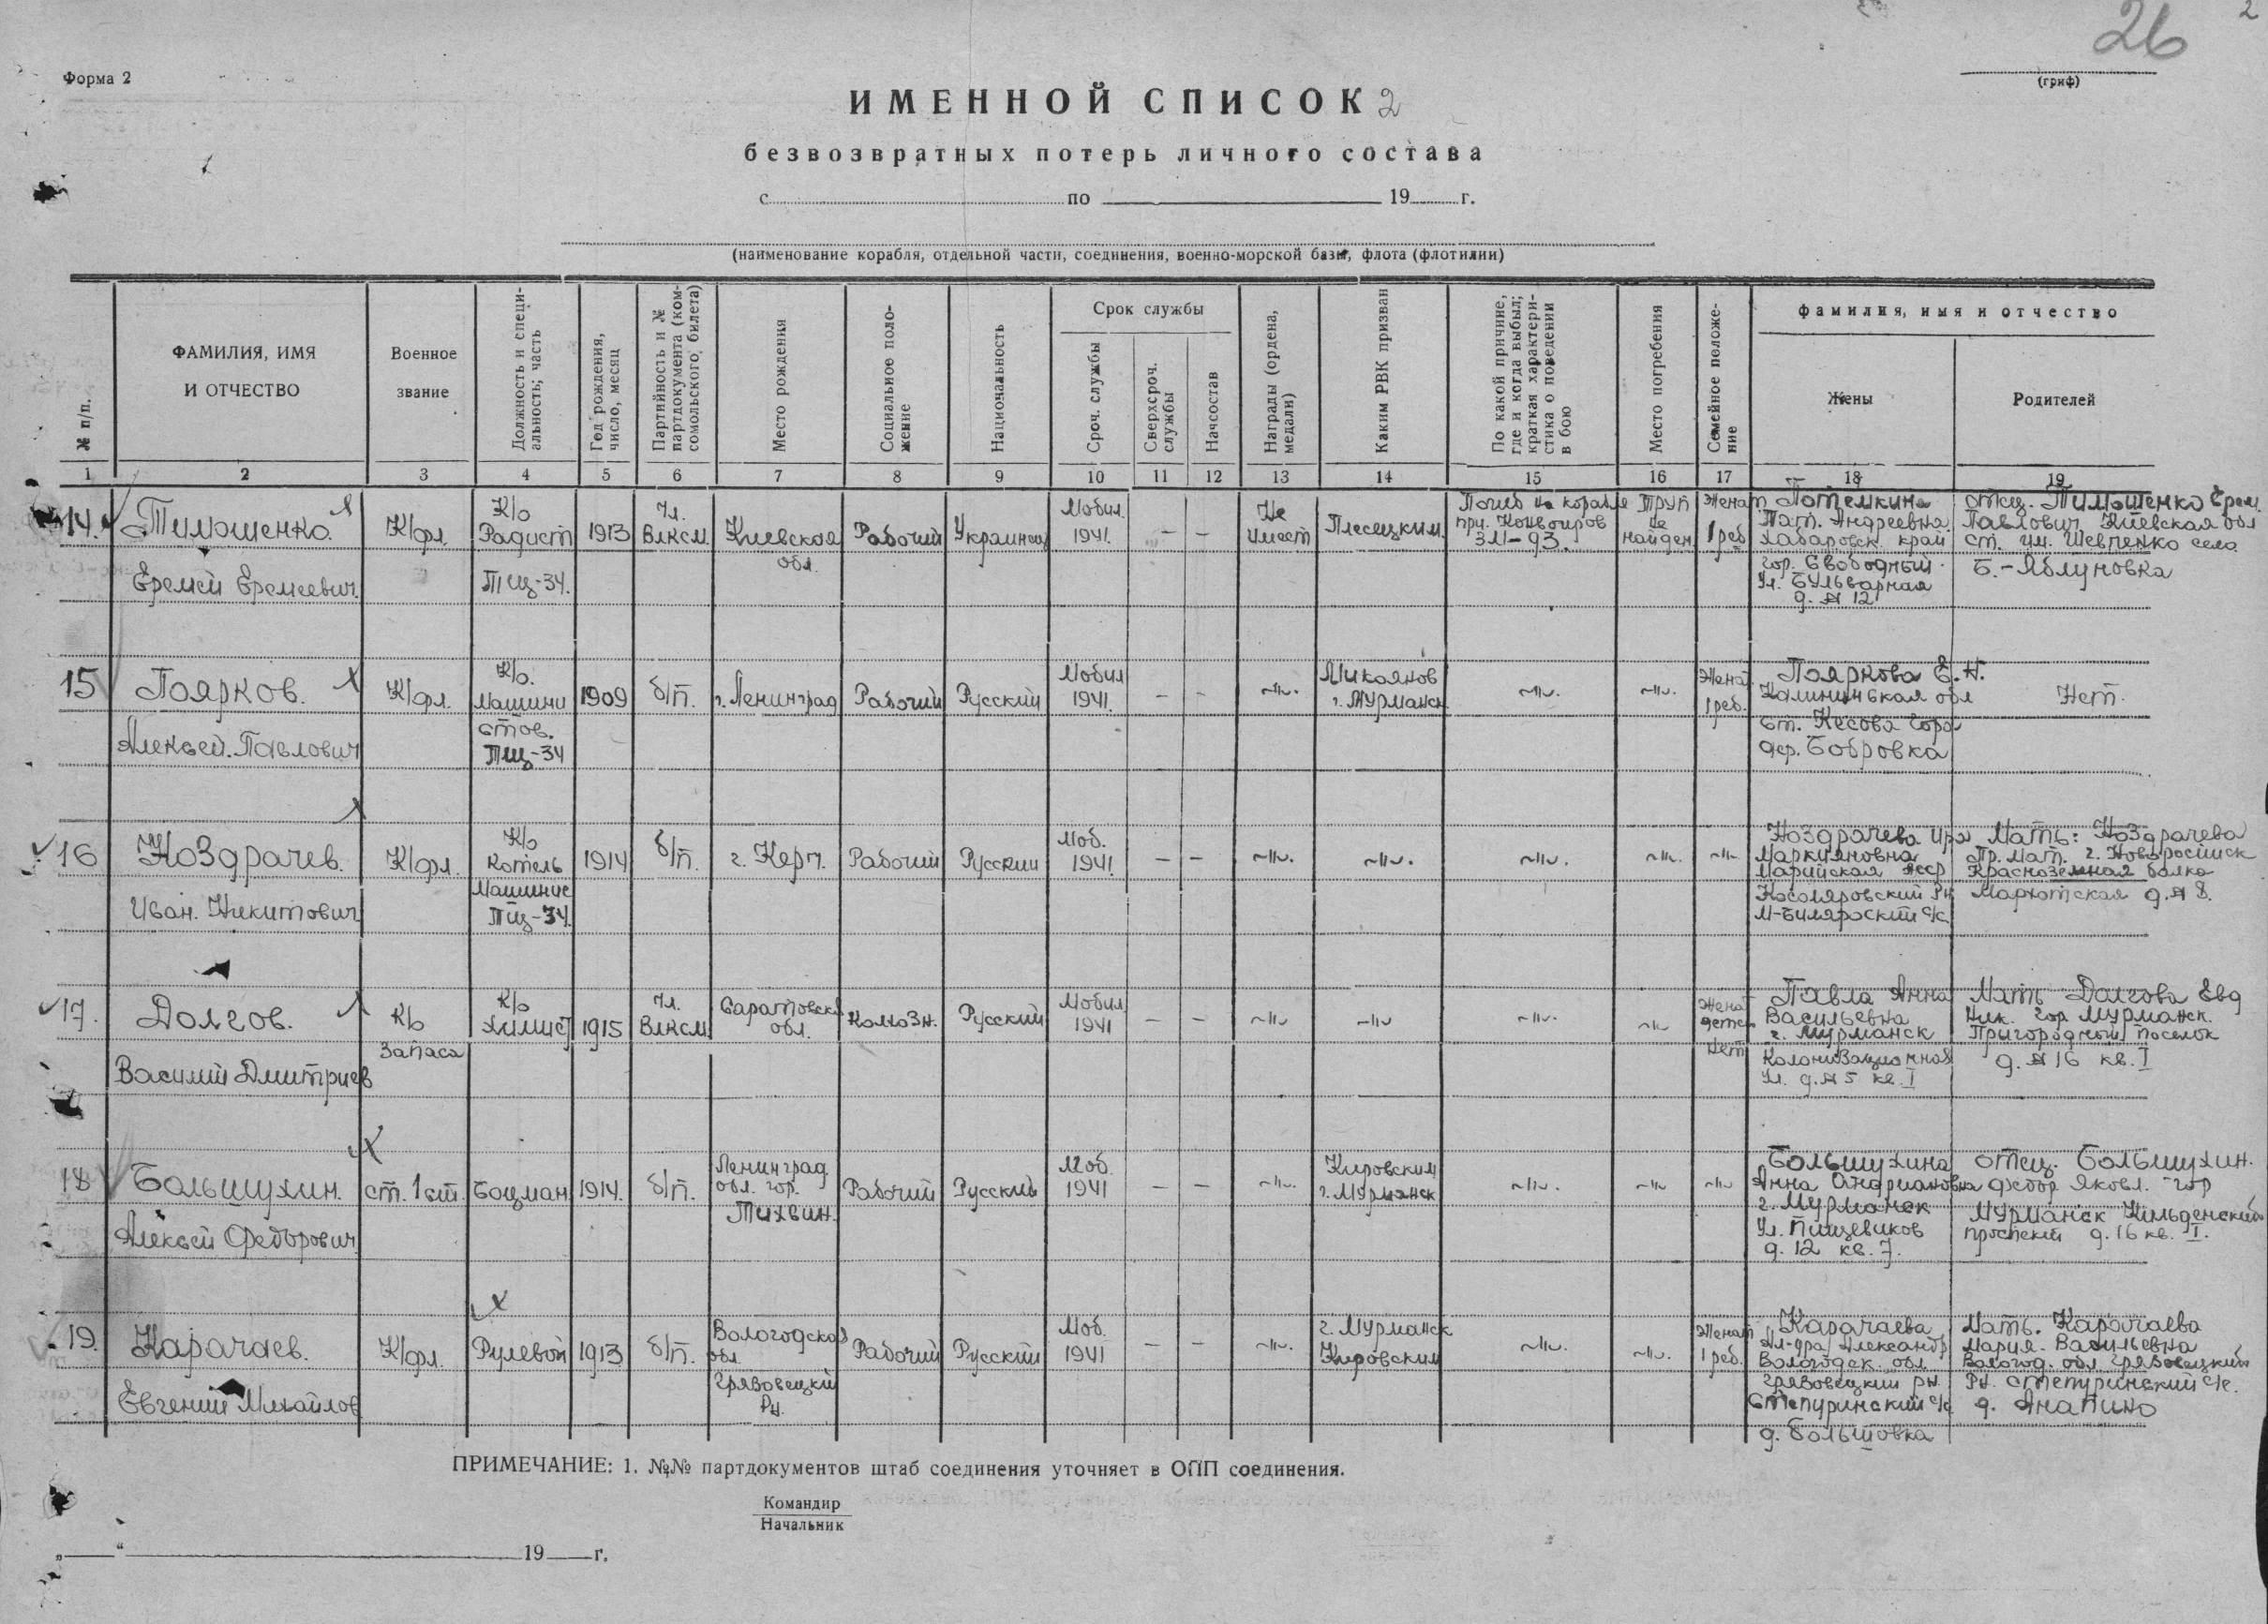 26
2
Форма 2
(гриф)
ИМЕННОЙ СПИСОК 2
безвозвратных потерь личного состава
с по 19 г.
(наименование корабля, отдельной части, соединения, военно-морской базы, флота (флотилии)
№ п/п.
ФАМИЛИЯ, ИМЯ
И ОТЧЕСТВО
Военное
звание
Должность и специ-
альность; часть
Год рождения,
число, месяц
Партийность и №
партдокумента (ком-
сомольского, билета)
Место рождения
Социальное поло-
жение
Национальность
Срок службы
Сроч. службы
Сверхсроч.
службы
Начсостав
Награды (ордена,
медали)
Каким РВК призван
По какой причине,
где и когда выбыл;
краткая характери-
стика о поведении
в бою
Место погребения
Семейное положе-
ние
фамилия, имя и отчество
Жены
Родителей
1 2 3 4 5 6 7 8 9 10 11 12 13 14 15 16 17 18 19
14.
Тимошенко.
Еремей Еремеевич.
К/фл.
К/о
Радист
ТЩ-34.
1913
Чл.
ВЛКСМ.
Киевская
обл.
Рабочий
Украинец
Мобил.
1941.
— —
Не
имеет
Плесецким.
Погиб на корабле
при. Конвоиров
ЗМ-93.
Труп
не
найден.
Женат
1 реб
Потемкина
Пат. Андреевна.
Хабаровск. край
гор. Свободный.
ул. Бульварная
д. № 12
отец. Тимошенко Ерем.
Павлович Киевская обл
ст. им. Шевченко село
Б.-Яблуновка
15
Поярков.
Алексей. Павлович
К/фл.
К/о.
Машини
стов.
ТЩ-34
1909
б/п.
г. Ленинград
Рабочий
Русский
Мобил
1941.
— —
~"~.
Микоянов
г. Мурманск
~"~.
~"~.
Женат
1 реб.
Пояркова Е. Н.
Калининская обл
ст. Кесова Гора
дер. Бобровка
Нет.
16
Ноздрачев.
Иван. Никитович
К/фл.
К/о
котель
Машинис
ТЩ-34.
1914
б/п.
г. Керч.
Рабочий
Русский
Моб.
1941.
— —
~"~.
~"~.
~"~.
~"~.
~"~
Ноздрачева Ира
Маркияновна
Марийская АССР
Косоляровский Рн
М-Биляроский с/с
Мать: Ноздрачева
Пр. Мат. г. Новоросийск
Красноземная балка
Мархотская д. № 8.
17.
Долгов.
Василий Дмитриев
К/о
Запаса
К/о
Химист
1915
Чл.
ВЛКСМ
Саратовска
обл.
Колхозн.
Русский
Мобил
1941
— —
~"~
~"~
~"~.
~"~
Женат
детей
нет
Павла Анна
Васильевна
г. Мурманск
Колонизационная
ул. д. № 5 кв. I
Мать Долгова Евд
Ник. гор Мурманск.
Пригородный поселок
д. № 16 кв. I
18
Большухин.
Алексей Федорович
ст. 1 ст.
Боцман
1914.
б/п.
Ленинград
обл. гор.
Тихвин.
Рабочий
Русский
Моб.
1941
— —
~"~.
Кировским
г. Мурманск
~"~.
~"~
~"~
Большухина
Анна Андриановна
г. Мурманск
ул. Пищевиков
д. 12 кв. 7.
отец. Большухин.
Федор Яковл. гор
Мурманск Кильденский
проспект д. 16 кв. I.
19.
Карачаев.
Евгений Михайлов
К/фл.
Рулевой
1913
б/п.
Вологодская
обл.
Грязовецкий
Рн.
Рабочий
Русский
Моб.
1941
— —
~"~.
г. Мурманск
Кировским
~"~.
~"~.
Женат
1 реб.
Карачаева
Ал-дра Александр
Вологодск. обл
Грязовецкий рн.
Степуринский с/с
д. Большовка
Мать. Карачаева
Мария. Васильевна
Вологод. обл Грязовецкий
Рн. Степуринский с/с.
д. Анапино
ПРИМЕЧАНИЕ: 1. №№ партдокументов штаб соединения уточняет в ОПП соединения.
Командир
Начальник
„ “ 19 г.